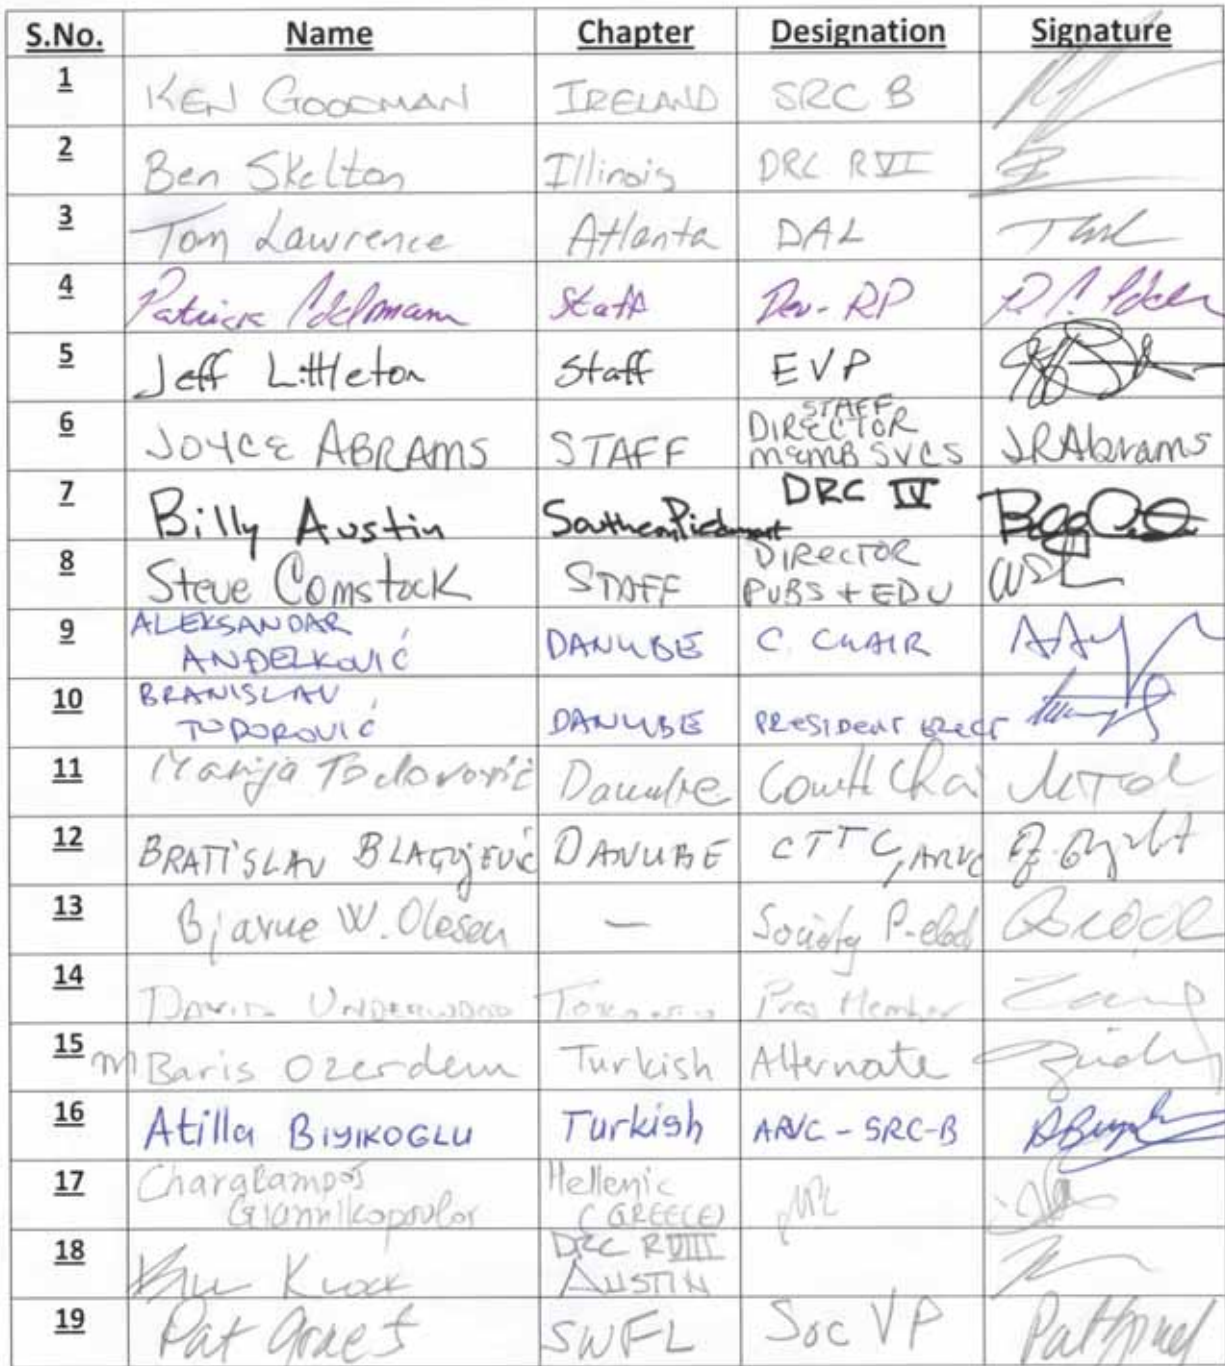 S.No. Name Chapter Designation Signature
1 KEN GOODMAN IRELAND SRC B
2 Ben Skelton Illinois DRC R VI
3 Tom Lawrence Atlanta DAL
4 Staff
5 Jeff Littleton Staff EVP
STAFF
6 JOYCE ABRAMS STAFF DIRECTOR JRAbrams
MEMB SVCS
7 Billy Austin Southern Piedmont DRC IV
8 Steve Comstock STAFF DIRECTOR
PUBS + EDU
9 ALEKSANDAR
ANĐELKOVIĆ DANUBE C. CHAIR
10 BRANISLAV
TODOROVIĆ DANUBE PRESIDENT ELECT
11 Marija Todorović Danube
12 BRATISLAV BLAGOJEVIĆ DANUBE CTTC, ARVC
13 Bjarne W. Olesen — Society P-elect
14 DAVID UNDERWOOD TORONTO Pres Member
15 M Baris Ozerdem Turkish Alternate
16 Atilla BIYIKOGLU Turkish ARVC - SRC-B
17 Charalampos Hellenic
Giannikopoulos (GREECE)
18 DRC R VIII
AUSTIN
19 Pat Graef SWFL Soc VP